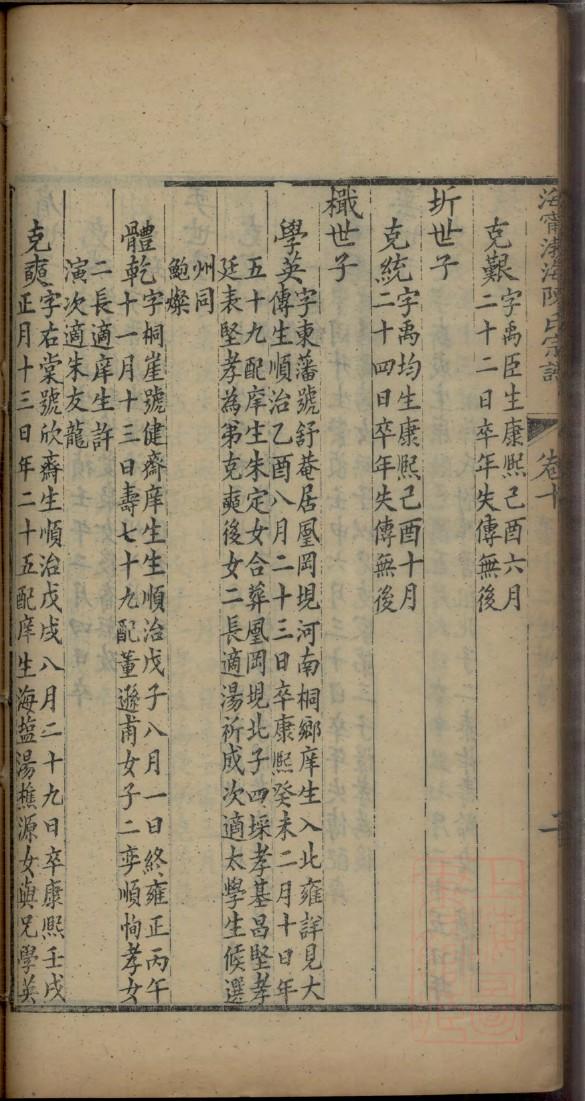 海寧渤海陳氏宗譜
卷十
克艱
字禹臣生康熙己酉六月
二十二日卒年失傳無後
圻世子
克統
字禹均生康熙己酉十月
二十四日卒年失傳無後
檝世子
學英
字東藩號舒菴居凰岡堄河南桐鄉庠生入北雍詳見大
傳生順治乙酉八月二十三日卒康熙癸未二月十日年
五十九配庠生朱定女合葬凰岡堄北子四埰孝基昌堅孝
廷表堅孝為弟克奭後女二長適湯祈成次適太學生候選
州同
鮑燦
體乾
字桐崖號健齋庠生生順治戊子八月一日終雍正丙午
十一月十三日壽七十九配董遜甫女子二奕順恂孝女
二長適庠生許
演次適朱友龍
克奭
字右棠號欣齋生順治戊戌八月二十九日卒康熙壬戌
正月十三日年二十五配庠生海鹽湯樵源女與兄學英